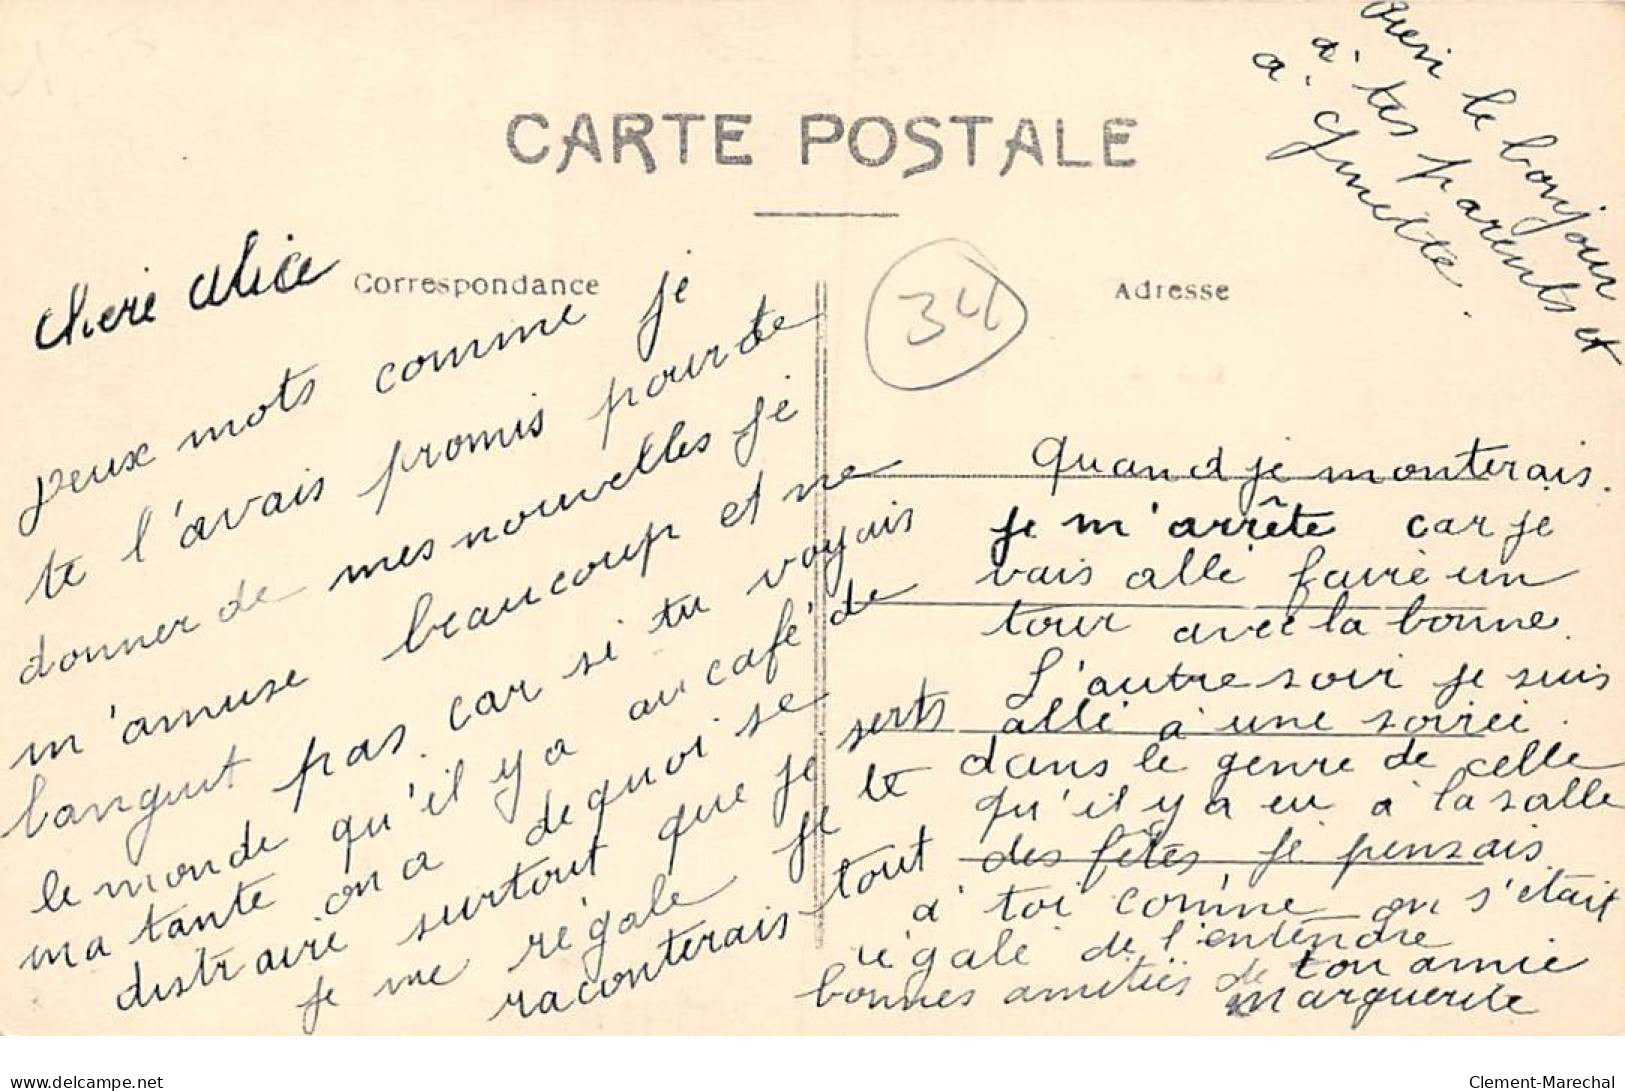 CARTE POSTALE
Correspondance
Adresse
34
le bonjour
à tes parents et
à Ginette.
chère Alice
peux mots comme je
te l'avais promis pour te
donner de mes nouvelles je
m'amuse beaucoup et ne
languit pas car si tu voyais
le monde qu'il y a au café de
ma tante on a de quoi se
distraire surtout que je serts
je me régale je te
raconterais tout
Quand je monterais.
je m'arrête car je
vais allé faire un
tour avec la bonne.
L'autre soir je suis
allé à une soirée
dans le genre de celle
qu'il y a eu à la salle
des fêtes je pensais
à toi comme on s'était
régalé de l'entendre
bonnes amitiés de ton amie
marguerite
delcampe.net
Clement-Marechal